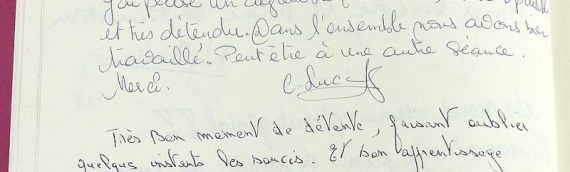 j'ai passé un
et très détendu. Dans l'ensemble nous avons bien
travaillé.. Peut être à une autre séance.
Merci. C. Luc
Très bon moment de détente, faisant oublier
quelques instants les soucis. Et bon apprentissage